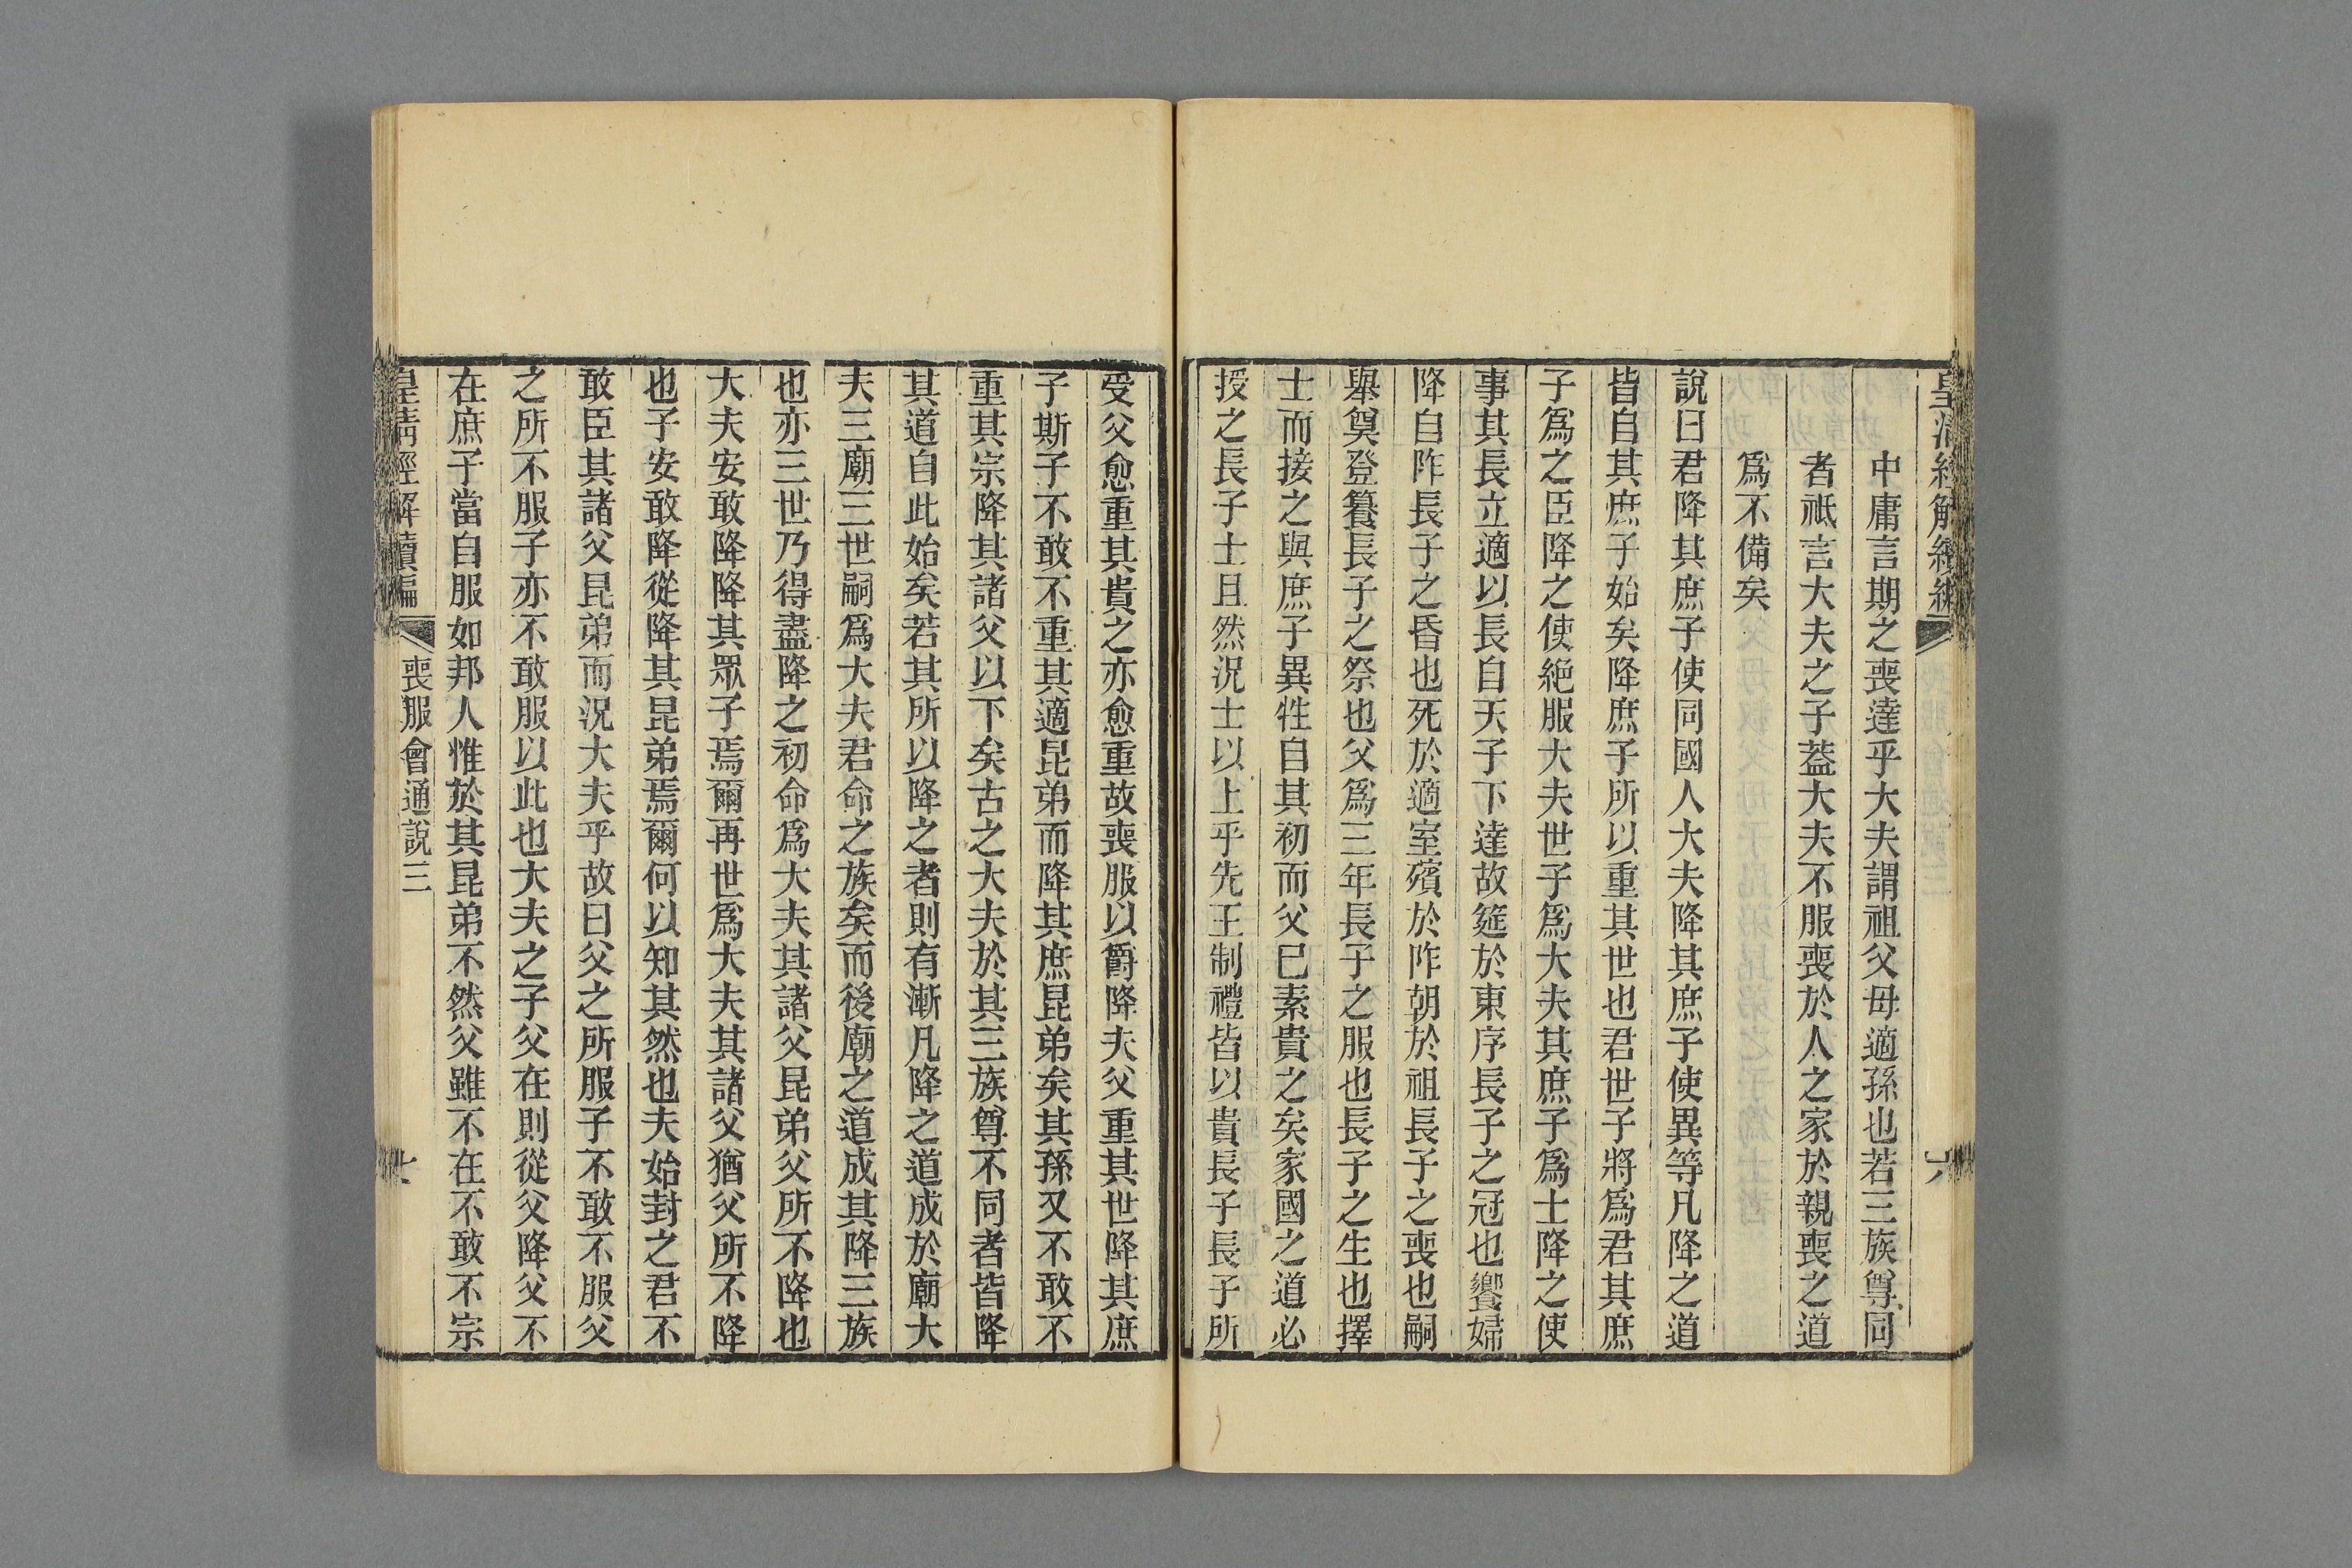 皇清經解續編
六
中庸言期之喪達乎大夫謂祖父母適孫也若三族尊同
者祗言大夫之子蓋大夫不服喪於人之家於親喪之道
爲不備矣
說曰君降其庶子使同國人大夫降其庶子使異等凡降之道
皆自其庶子始矣降庶子所以重其世也君世子將爲君其庶
子爲之臣降之使絶服大夫世子爲大夫其庶子爲士降之使
事其長立適以長自天子下達故筵於東序長子之冠也饗婦
降自阼長子之昏也死於適室殯於阼朝於祖長子之喪也嗣
舉奠登餕長子之祭也父爲三年長子之服也長子之生也擇
士而接之與庶子異牲自其初而父巳素貴之矣家國之道必
授之長子士且然況士以上乎先王制禮皆以貴長子長子所
受父愈重其貴之亦愈重故喪服以爵降夫父重其世降其庶
子斯子不敢不重其適昆弟而降其庶昆弟矣其孫又不敢不
重其宗降其諸父以下矣古之大夫於其三族尊不同者皆降
其道自此始矣若其所以降之者則有漸凡降之道成於廟大
夫三廟三世嗣爲大夫君命之族矣而後廟之道成其降三族
也亦三世乃得盡降之初命爲大夫其諸父昆弟父所不降也
大夫安敢降降其眾子焉爾再世爲大夫其諸父猶父所不降
也子安敢降從降其昆弟焉爾何以知其然也夫始封之君不
敢臣其諸父昆弟而況大夫乎故曰父之所服子不敢不服父
之所不服子亦不敢服以此也大夫之子父在則從父降父不
在庶子當自服如邦人惟於其昆弟不然父雖不在不敢不宗
皇清經解續編
喪服會通說三
七